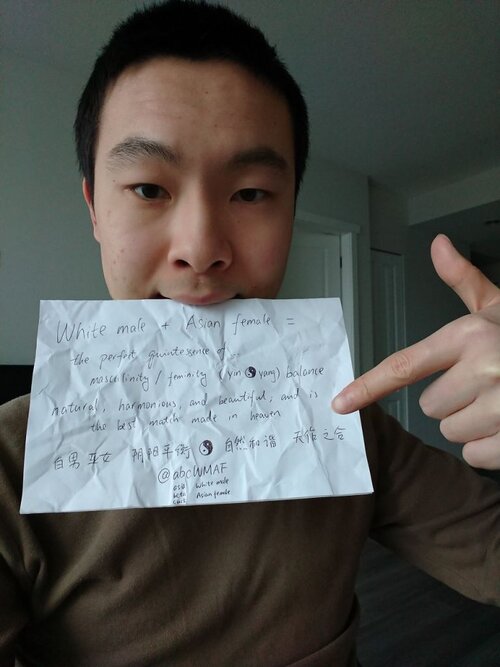 White male + Asian female =
the perfect quintessence of..
masculinity / feminity (yin ☯ yang) balance
natural, harmonious, and beautiful; and is
the best match made in heaven
白男亚女 阴阳平衡 ☯ 自然和谐 天作之合
@abcWMAF
White male
Asian female